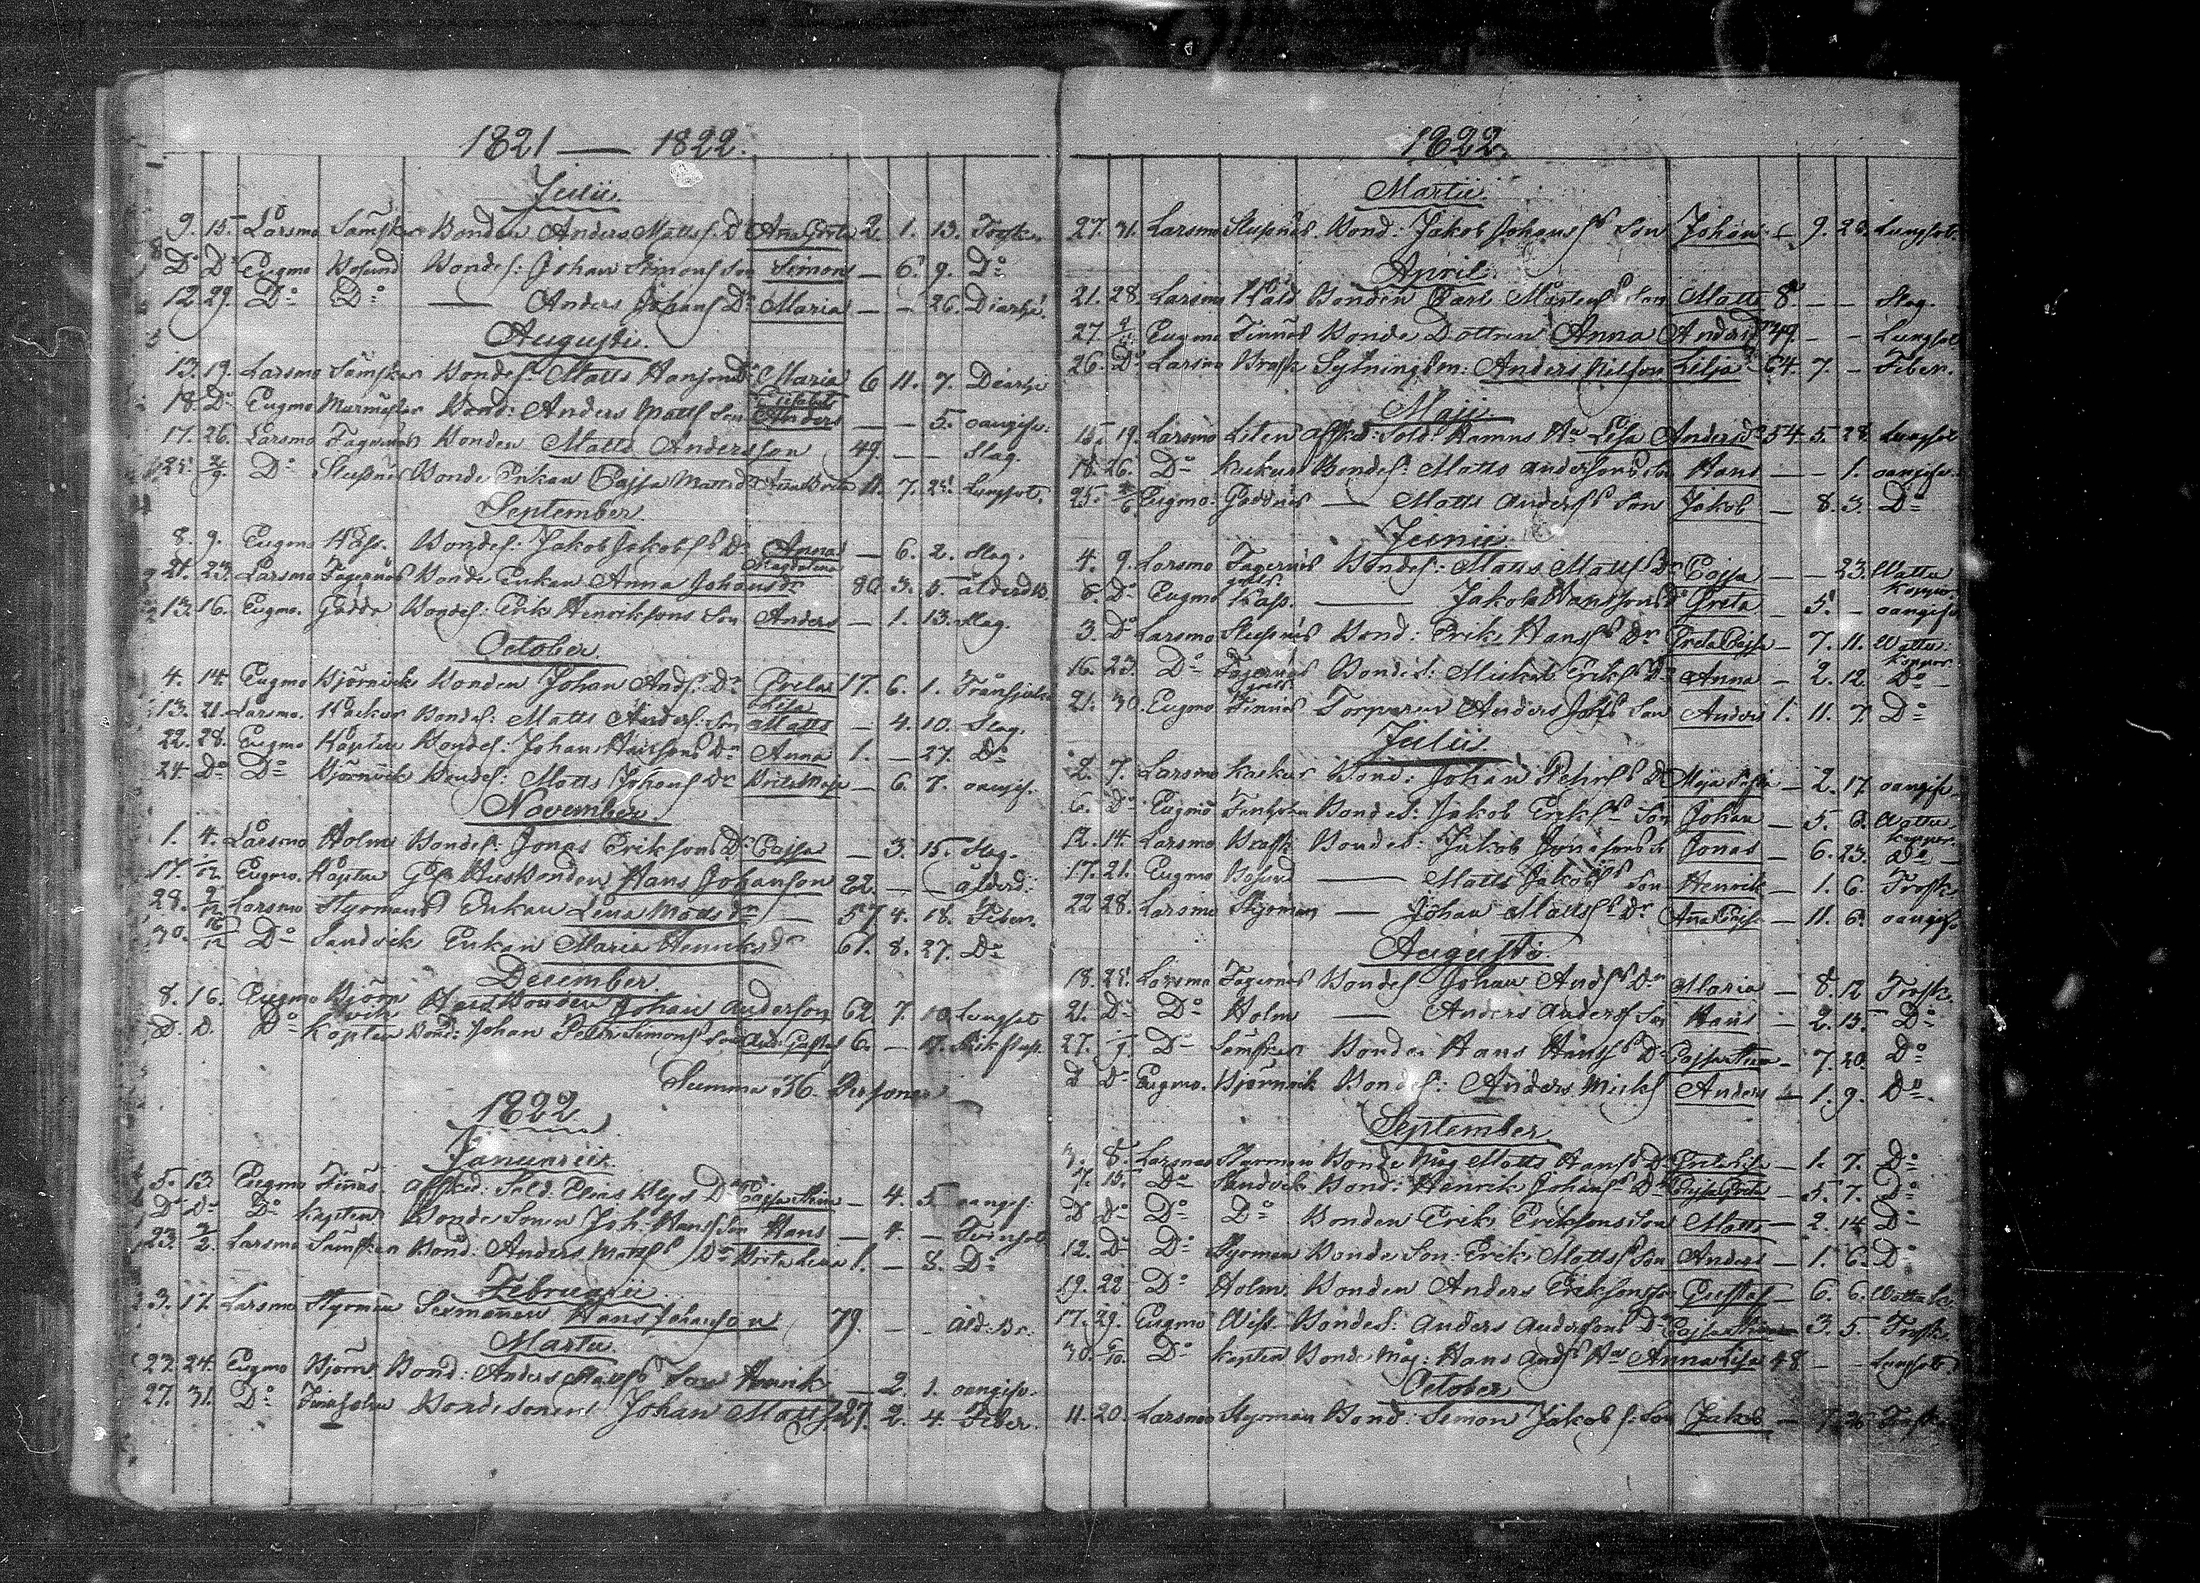 1821 — 1822.
Julii.
9. 15. Larsmo Sämskar Bonden Anders Matts: Dr Ana Greta 2. 1. 13. Trosk.
Do Do Eugmo Bosund Bondes: Johan Simons Son Simons — 6. 9. Do
12. 29. Do Do — Anders Johans Dr Maria — — 26. Diarhé.
Augusti.
13. 19. Larsmo Sämskar Bondes: Matts Hansons Dr Maria 6 11. 7. Diarhé
Elisabet
18. Do Eugmo Murmäster Bond: Anders Matts Son Anders — — 5. oangifv:
17. 26. Larsmo Fagernäs Bonden Matts Andersson 49. — — Slag.
25. 2/9. Do Slussnäs Bonde Enkan Cajsa Mattsdr Anna Brita 11. 7. 25. Lungsot.
September
8. 9. Eugmo Kåss. Bondes: Jakob Jakobss Dr Anna — 6. 2. Slag.
Magdalena
21. 23. Larsmo Fagernäs Bonde Enkan Anna Johansdr 80. 3. 5. ålderdb.
13. 16. Eugmo. Gädda Bondes: Erik Henriksons Son Anders — 1. 13. Slag.
October
4. 14. Eugmo Björnvik Bonden Johan Ands: Dr Greta 17. 6. 1. Trånsjuka
Lisa
13. 21. Larsmo. Kackur Bondes: Matts Anders: Son Matts — 4. 10. Slag.
22. 28. Eugmo Köpten Bondes: Johan Hansons Dr Anna 1. — 27. Do
24. Do Do Björnvik Bondes: Matts Johans Dr Brita Maja — 6. 7. oangif.
November.
1. 4. Larsmo Holm Bondes: Jonas Eriksons Dr Cajsa — 3. 15. Slag.
17. Eugmo. Köpten Husbonden Hans Johanson 82. — — ålderd:
28. 2/12 Larsmo Styrmans Enkan Lena Matsdr — 57 4. 18. Feber.
30. 16/12 Do Sandvik Enkan Maria Henriksdr 61. 8. 27. Do
December.
8. 16. Eugmo Björn Husbonden Johan Anderson 62. 7. 10. Lungsot
vik
D. D. Do Köpten Bond: Johan Petter Simons Son And: Gustaf 6. — 17. Kikhost.
Summa 36. Personer
1822
Januarii
5. 13 Eugmo Finnäs. Afsked: Sold: Elias Klys Dr Cajsa Stina — 4. 5 oangif:
Do Do Do Köpten Bonde Sonen Joh: Hanss Son Hans — 4. — Tvinsot.
23. 3/2. Larsmo Sämskar Bond: Anders Matts Dr Brita Lena 1. — 8. Do
Februarii.
3. 17. Larsmo Styrman Sexmannen Hans Johanson 79. — — Åld: Br:
Martii.
23. 24. Eugmo Björnv Bond: Anders Hanss Son Henrik — 2. 1. oangifv.
27. 31. Do Finnholm Bondesonen Johan Matts 27. 2. 4. Feber.
1822.
Martii.
27. 31. Larsmo Slussnäs. Bond: Jakob Johanss Son Johan — 9. 23. Lungsot.
April
21. 28. Larsmo Kåld Bonden Carl Mårtenss Son Matts 8. — — Slag.
27. Eugmo Finnäs Bonde Dottren Anna Andersdr 39. — — Lungsot
26. Do Larsmo Brask Sytningsm: Anders Nilsson Lilja 64. 7. — Feber.
Maji
15. 19. Larsmo Liten Afsked: Sold: Ramns Ha Lisa Andersdr 54. 5. 28. Lungsot
18. 26. Do Kackur Bondes: Matts Andersons Son Hans — — 1. oangifv.
25. Eugmo. Gäddnäs — Matts Anderss Son Jakob — 8. 3. Do
Junii
4. 9. Larsmo Fagernäs Bondes: Matts Matts Dr Cajsa — — 23. Wattu
koppor.
6. Do Eugmo Kåss. — Jakob Hanssons Dr Greta — 5. — oangifv
3. Do Larsmo Slussnäs Bond: Erik Hanss Dr Greta Cajsa — 7. 11. Wattu:
koppor.
16. 23. Do Fagernäs Bondes: Mickel Eriks Dr Anna — 2. 12. Do
21. 30. Eugmo Finnäs Torparen Anders Johs Son Anders 1. 11. 7. Do
Julii
2. 7. Larsmo Kackur Bond: Johan Pehrss Dr Maja Lisa — 2. 17. oangifv.
6. Do Eugmo Finholm Bondes: Jakob Eriks Son Johan — 5. 6. Wattu
koppor.
12. 14. Larsmo Brask Bondes: Jakob Jonasons S: Jonas — 6. 23. Do
17. 21. Eugmo Bosund — Matts Jakobs Son Henrik — 1. 6. Trosk.
22 28. Larsmo Styrman — Johan Mattss Dr Ana Cajsa — 11. 6. oangifv
Augusti.
18. 25. Larsmo Fagernäs Bondes Johan Ands Dr Maria — 8. 12 Trosk.
21. Do Do Holm — Anders Anders Son Hans — 2. 15. Do
27. Do Sämskar Bonde Hans Hanss Dr Cajsa Stina — 7. 20. Do
D Do Eugmo. Björnvik Bondes: Anders Micks Anders — 1. 9. Do
September
3. 8. Larsmo Styrman Bonde Måg Matts Hans Dr Greta Lisa — 1. 7. Do
7. 15. Do Sandvik Bond: Henrik Johanss Dr Cajsa Greta — 5. 7. Do
D Do Do Do Bonden Erik Eriksons Son Matts — 2. 14 Do
12. Do Do Styrman Bonde Son Erik Mattss Son Anders — 1. 6. Do
19. 22 Do Holm Bonden Anders Eriksons Son Gustaf — 6. 6. Wattu ko.
17. 29. Eugmo Wist Bondes: Anders Andersons Dr Cajsa Stina — 3. 5. Trosk.
30. 6/10. Do Köpten Bonde Måg: Hans Ands Ha Anna Lisa 48. — — Lungsot.
October
11. 20. Larsmo Styrman Bond: Simon Jakobs: Son Jakob — Trosk